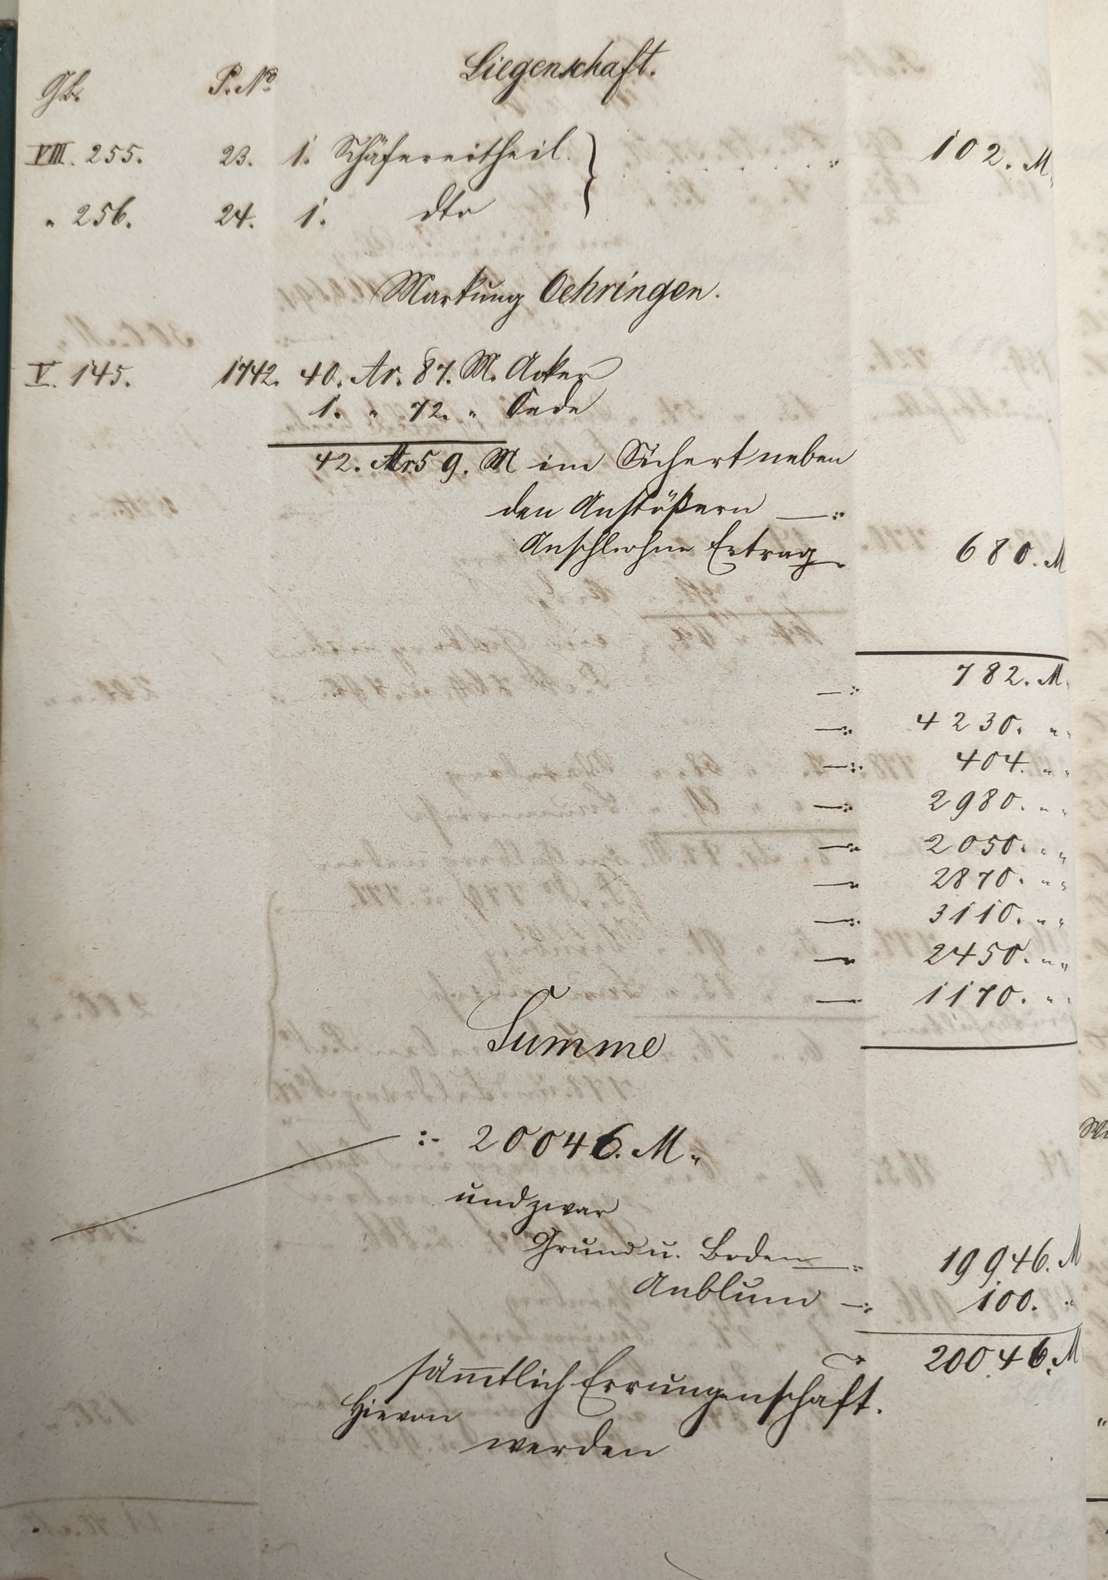 Liegenschaft.
Gb. P. No
VIII. 255. 23. 1. Schäfereitheil. 102. M.
„ 256. 24. 1. dto
Markung Oehringen.
V. 145. 1742. 40. Ar. 87. M. Acker
1. „ 72. „ Oede
42. Ar 59. M im Söchert neben
den Anstößern —:
Anschl. ohne Ertrag 680. M
782. M.
—: 4230. „
—: 404. „
—: 2980. „
— 2050. „
— 2870. „
—: 3110. „
— 2450. „
— 1170. „
Summe
:- 20046. M.
und zwar
Grund u. Boden —: 19946. M
Anblum —: 100. „
20046. M
sämtlich Errungenschaft.
Hievon
werden